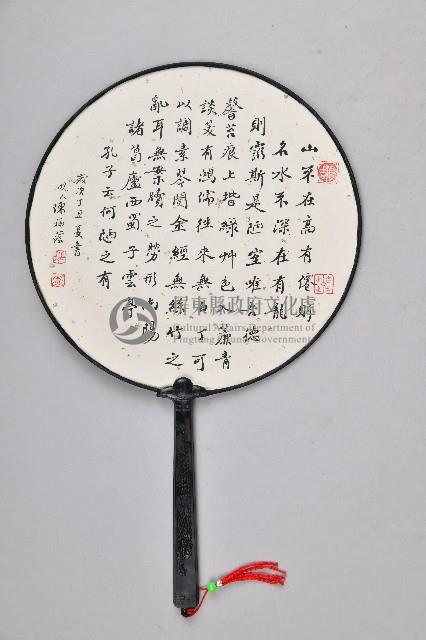 山不在高有僊則
名水不深在有龍
則靈斯是陋室唯吾德
馨苔痕上堦綠艸色入簾青
談笑有鴻儒往來無白丁可
以調素琴閱金經無絲竹之
亂耳無案牘之勞形南陽
諸葛廬西蜀子雲亭
孔子云何陋之有
歲次丁丑夏書
陳福蔭
屏東縣政府文化處
Cultural Affairs Department of
Pingtung County Government